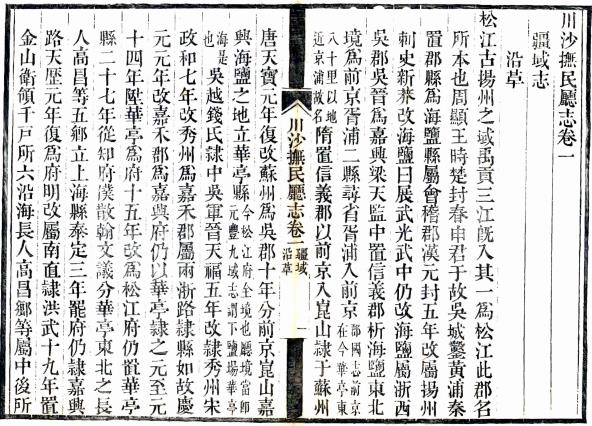 川沙撫民廳志卷一
疆域志
沿革
松江古揚州之域禹貢三江旣入其一爲松江此郡名
所本也周顯王時楚封春申君于故吳城鑿黃浦秦
置郡縣爲海鹽縣屬會稽郡漢元封五年改屬揚州
刺史新莽改海鹽曰展武光武中仍改海鹽屬浙西
吳郡吳晉爲嘉興梁天監中置信義郡析海鹽東北
境爲前京胥浦二縣尋省胥浦入前京郡國志前京在今華亭東
八十里以地近京浦故名隋置信義郡以前京入崑山隸于蘇州
川沙撫民廳志卷一 疆域 沿革 一
唐天寶元年復改蘇州爲吳郡十年分前京崑山嘉
興海鹽之地立華亭縣今松江府全境也廳境當卽元豐九域志謂下鹽場華亭
海是也吳越錢氏隸中吳軍晉天福五年改隸秀州宋
政和七年改秀州爲嘉禾郡屬兩浙路隸縣如故慶
元元年改嘉禾郡爲嘉興府仍以華亭隸之元至元
十四年陞華亭爲府十五年改爲松江府仍置華亭
縣二十七年從知府僕散翰文議分華亭東北之長
人高昌等五鄉立上海縣泰定三年罷府仍隸嘉興
路天歷元年復爲府明改屬南直隸洪武十九年置
金山衛領千戸所六沿海長人高昌鄉等屬中後所